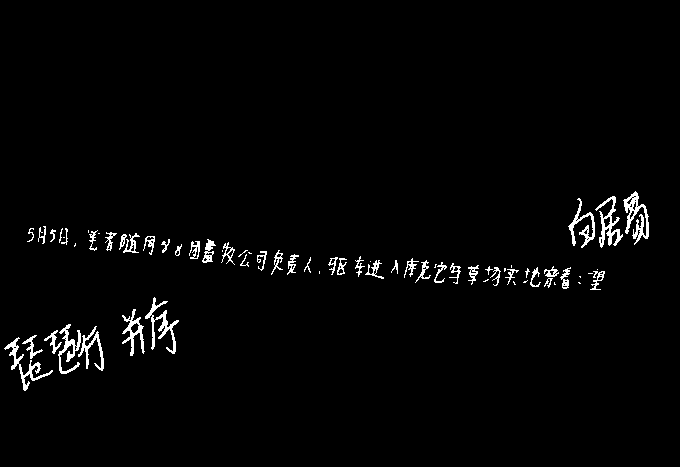 白居易
5月5日,笔者随同88团畜牧公司负责人,驱车进入库克它乌草场实地察看:望
琵琶行 并序